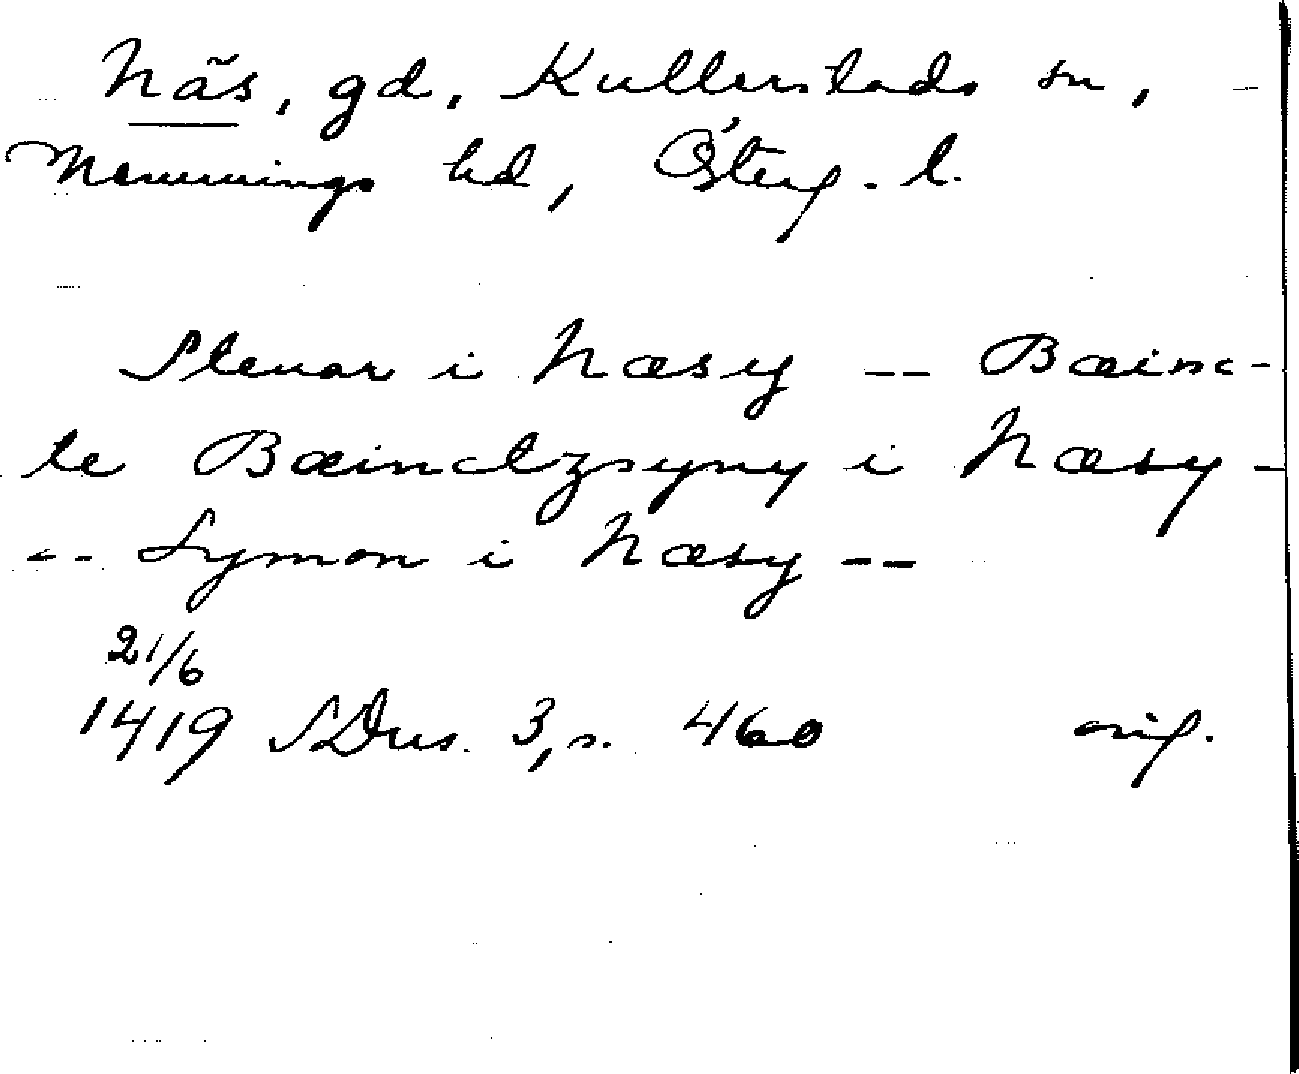 Näs, gd, Kullerstads sn,
Memmings hd, Österg. l.
Stenar i Næsy -- Bæinc-
te Bæinctzsyny i Næsy -
-- Symon i Næsy --
21/6
1419 SDns. 3, s. 460 orig.